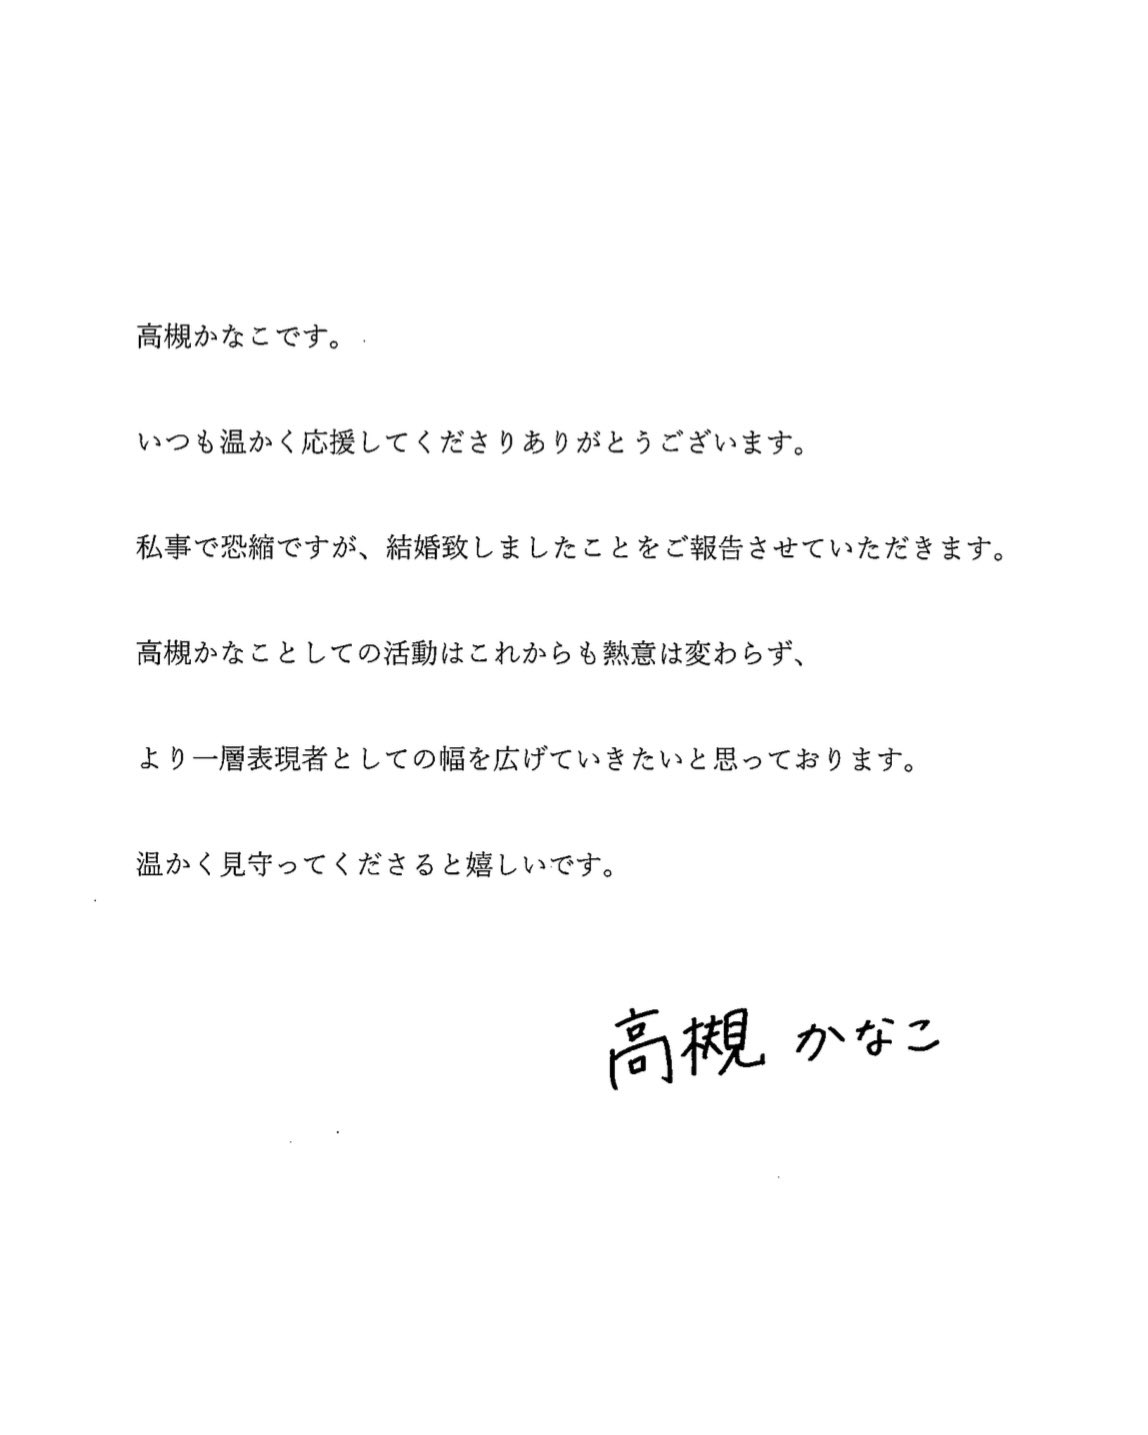 高槻かなこです。
いつも温かく応援してくださりありがとうございます。
私事で恐縮ですが、結婚致しましたことをご報告させていただきます。
高槻かなことしての活動はこれからも熱意は変わらず、
より一層表現者としての幅を広げていきたいと思っております。
温かく見守ってくださると嬉しいです。
高槻 かなこ